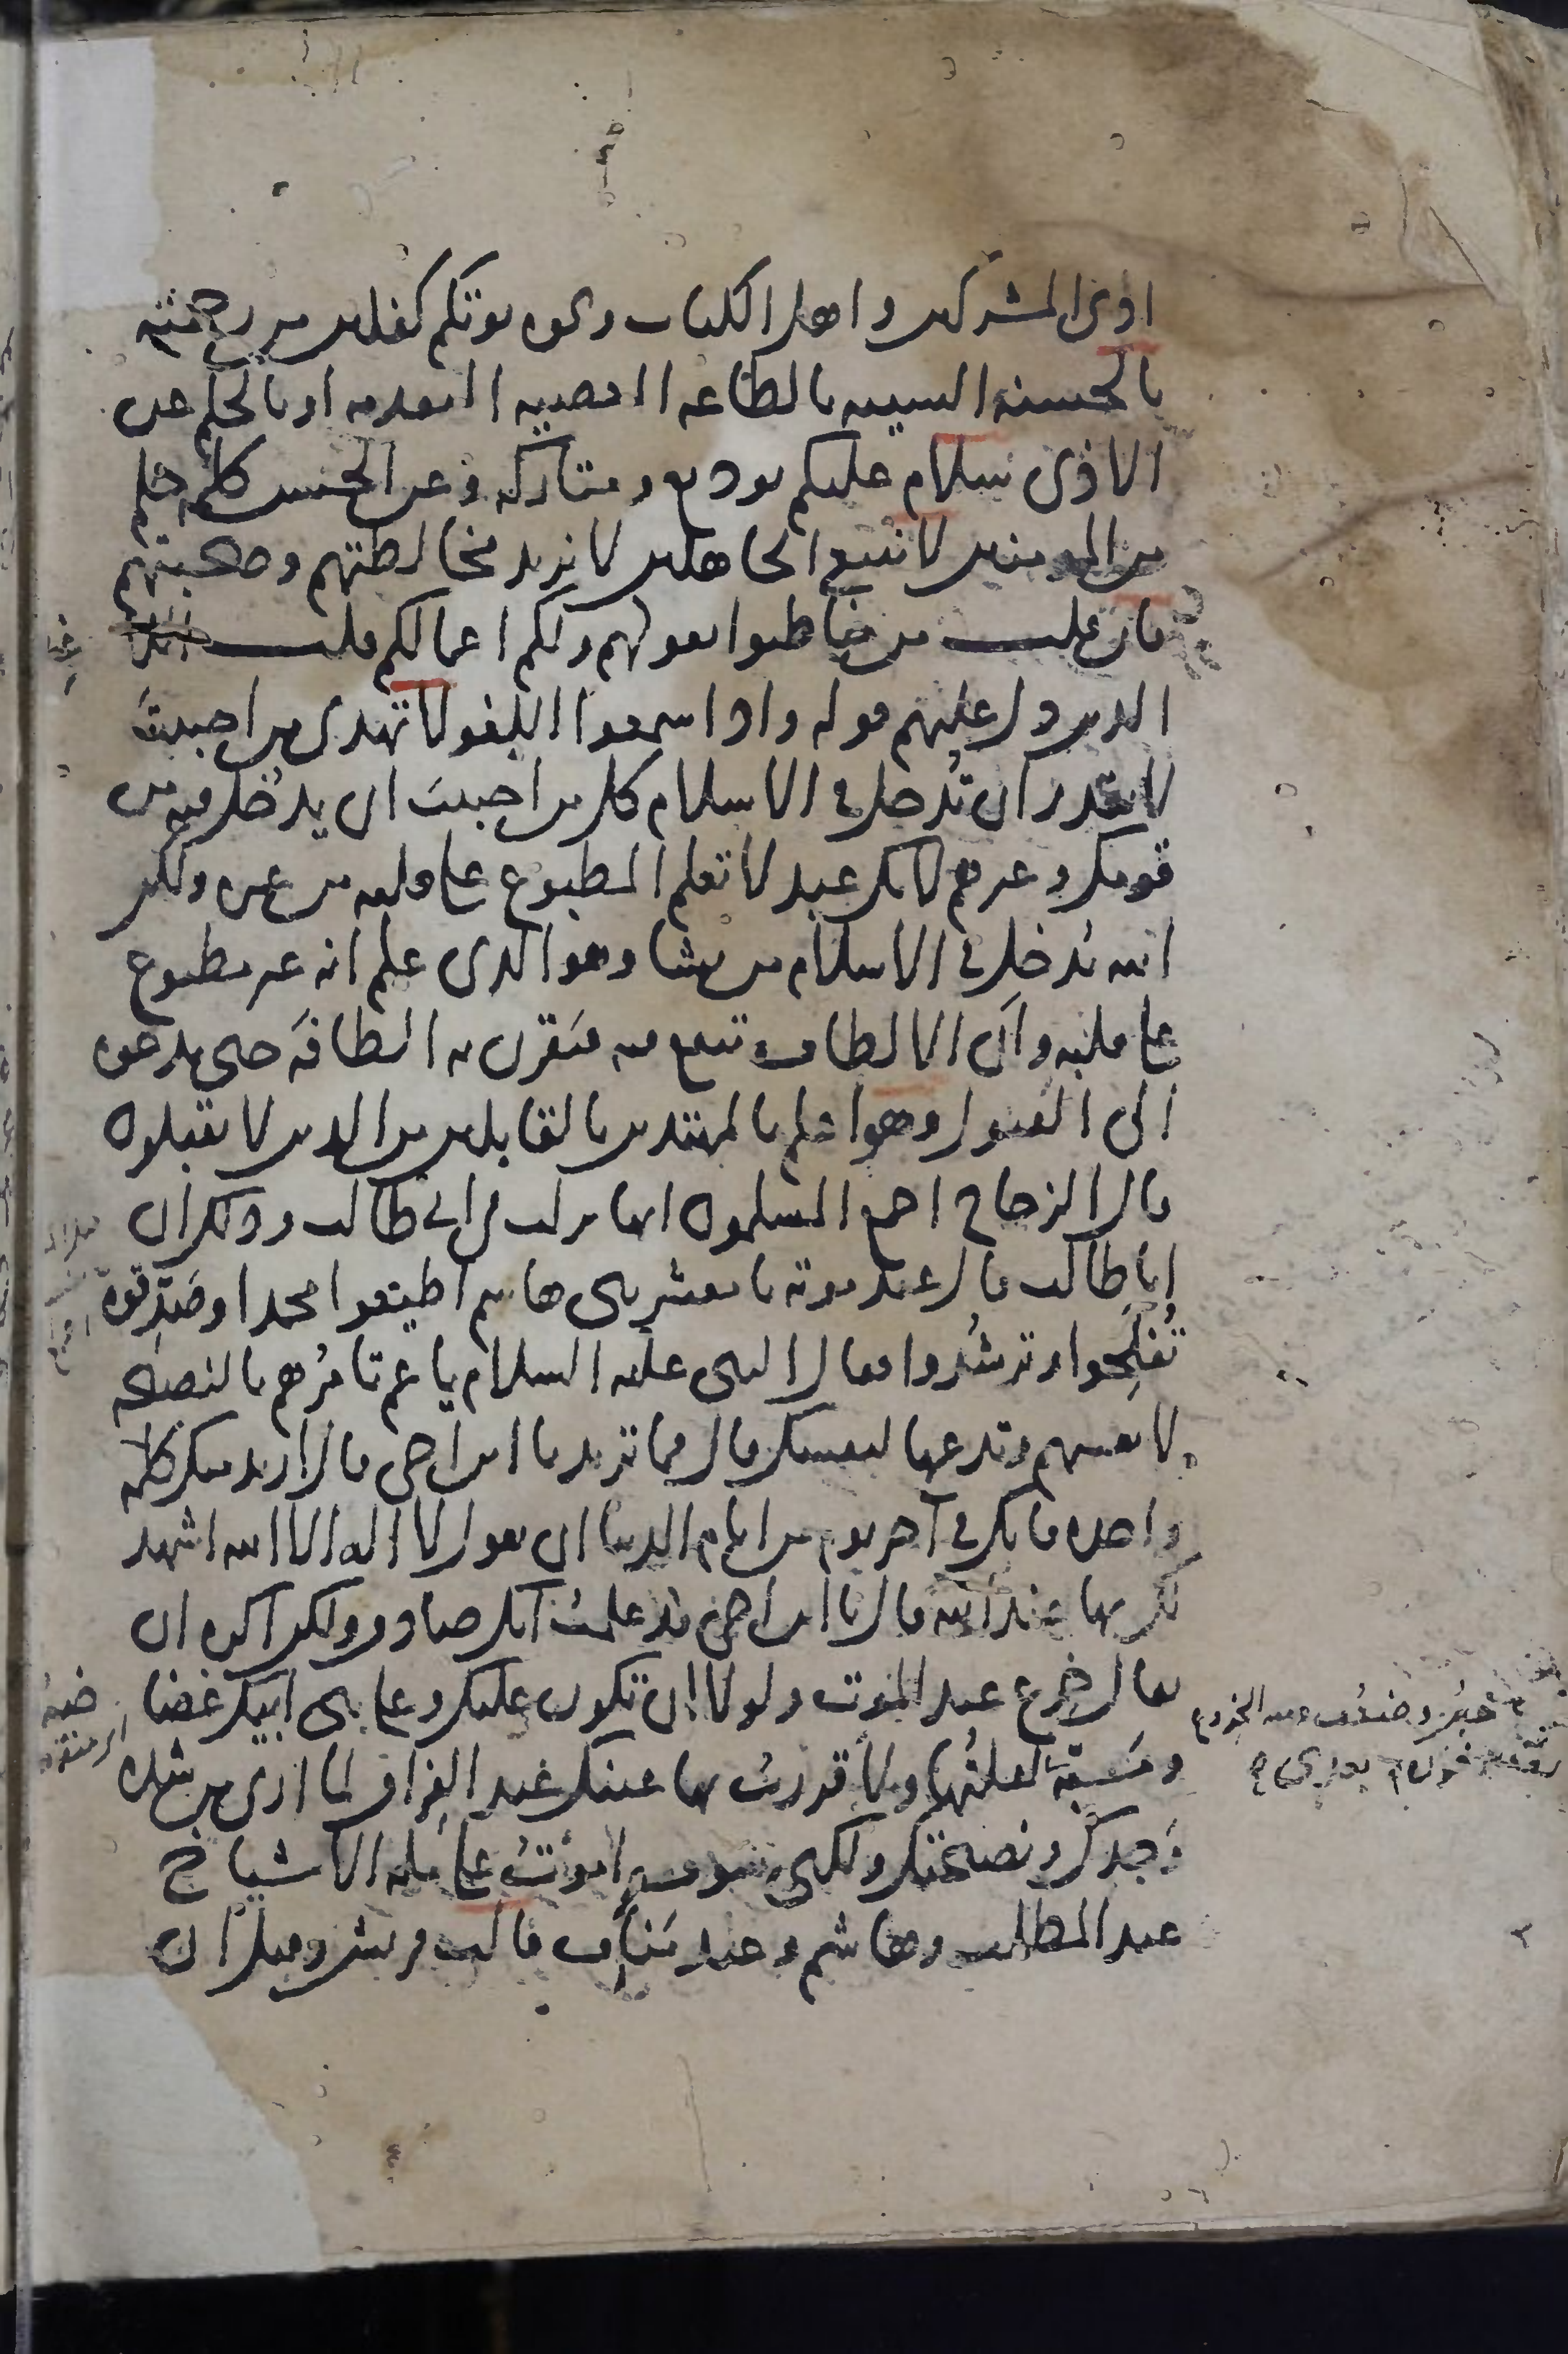 اذى المشركين واهل الكتاب ونحوه يوتكم كفلين من رحمته
بالحسنة السيية بالطاعة المعصية المتقدمة او بالحلم عن
الاذى سلام عليكم توديع ومتاركة وعن الحسن كلمة حلم
من المومنين لا نبتغي الجاهلين لا نريد مخالطتهم وصحبتهم
فان قلت من خاطبوا بقولهم ولكم اعمالكم قلت
الذين دل عليهم قوله واذا سمعوا اللغو لا تهدى من احببت
لا تقدر ان تدخل في الاسلام كل من احببت ان يدخل فيه من
قومك وغيرهم لانك عبد لا تعلم المطبوع على قلبه من غيره ولكن
الله يدخل في الاسلام من يشا وهو الذى علم انه غير مطبوع
على قلبه وان الالطاف تنفع فيه فيقرن به الطافه حتى يدعوه
الى القبول وهو اعلم بالمهتدين بالقابلين من الذين لا يقبلون
قال الزجاج اجمع المسلمون انها نزلت في ابي طالب وذلك ان
ابا طالب قال عند موته يا معشر بني هاشم اطيعوا محمدا وصدقوه
تفلحوا وترشدوا فقال النبي عليه السلام يا عم تامرهم بالنصيحة
لانفسهم وتدعها لنفسك قال فما تريد يا ابن اخى قال اريد منك كلمة
واحدة فانك في آخر يوم من ايام الدنيا ان تقول لا اله الا الله اشهد
لك بها عند الله قال يا ابن اخى قد علمت انك صادق ولكن اكره ان
يقال خرع عند الموت ولولا ان تكون عليك وعلى بني ابيك غضاضة
ومسبة لقلتها ولاقررت بها عينك عند الفراق لما ارى من شدة
وجدك ونصيحتك ولكنى سوف اموت على ملة الاشياخ
عبد المطلب وهاشم وعبد مناف قالت قريش وقيل ان